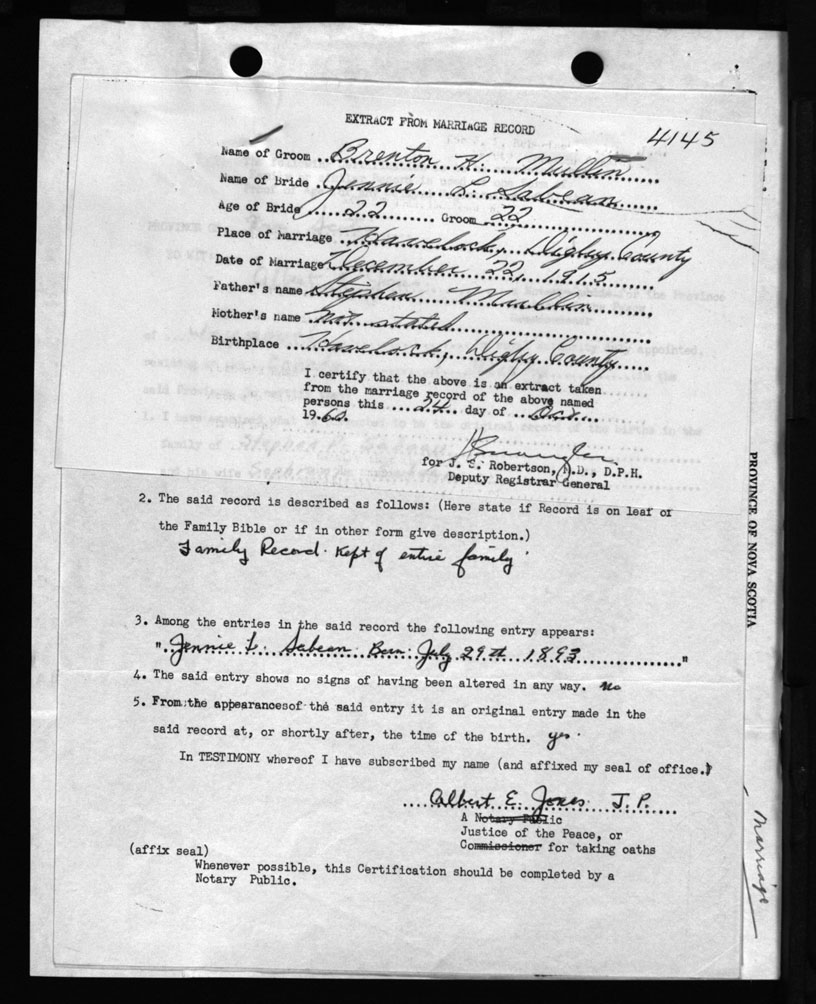 EXTRACT FROM MARRIAGE RECORD
4145
Name of Groom ..Brenton H. Mullin
Name of Bride .Jennie L. Sabean
Age of Bride ..22........ Groom .22
Place of Marriage .Havelock, Digby County
Date of Marriage December 22, 1915
Father's name Stephen Mullin
Mother's name not stated
Birthplace ..Havelock, Digby County
I certify that the above is an extract taken
from the marriage record of the above named
persons this ....24.. day of ..Oct....
1960.
for J. S. Robertson, M.D., D.P.H.
Deputy Registrar General
2. The said record is described as follows: (Here state if Record is on leaf of
the Family Bible or if in other form give description.)
Family Record. Kept of entire family.
3. Among the entries in the said record the following entry appears:
". Jennie L. Sabean. Born: July 29th 1893 ............"
4. The said entry shows no signs of having been altered in any way. no
5. From the appearances of the said entry it is an original entry made in the
said record at, or shortly after, the time of the birth. yes.
In TESTIMONY whereof I have subscribed my name (and affixed my seal of office.)
....Albert E. Jones J.P.
A Notary Public
Justice of the Peace, or
Commissioner for taking oaths
(affix seal)
Whenever possible, this Certification should be completed by a
Notary Public.
PROVINCE OF NOVA SCOTIA
Marriage